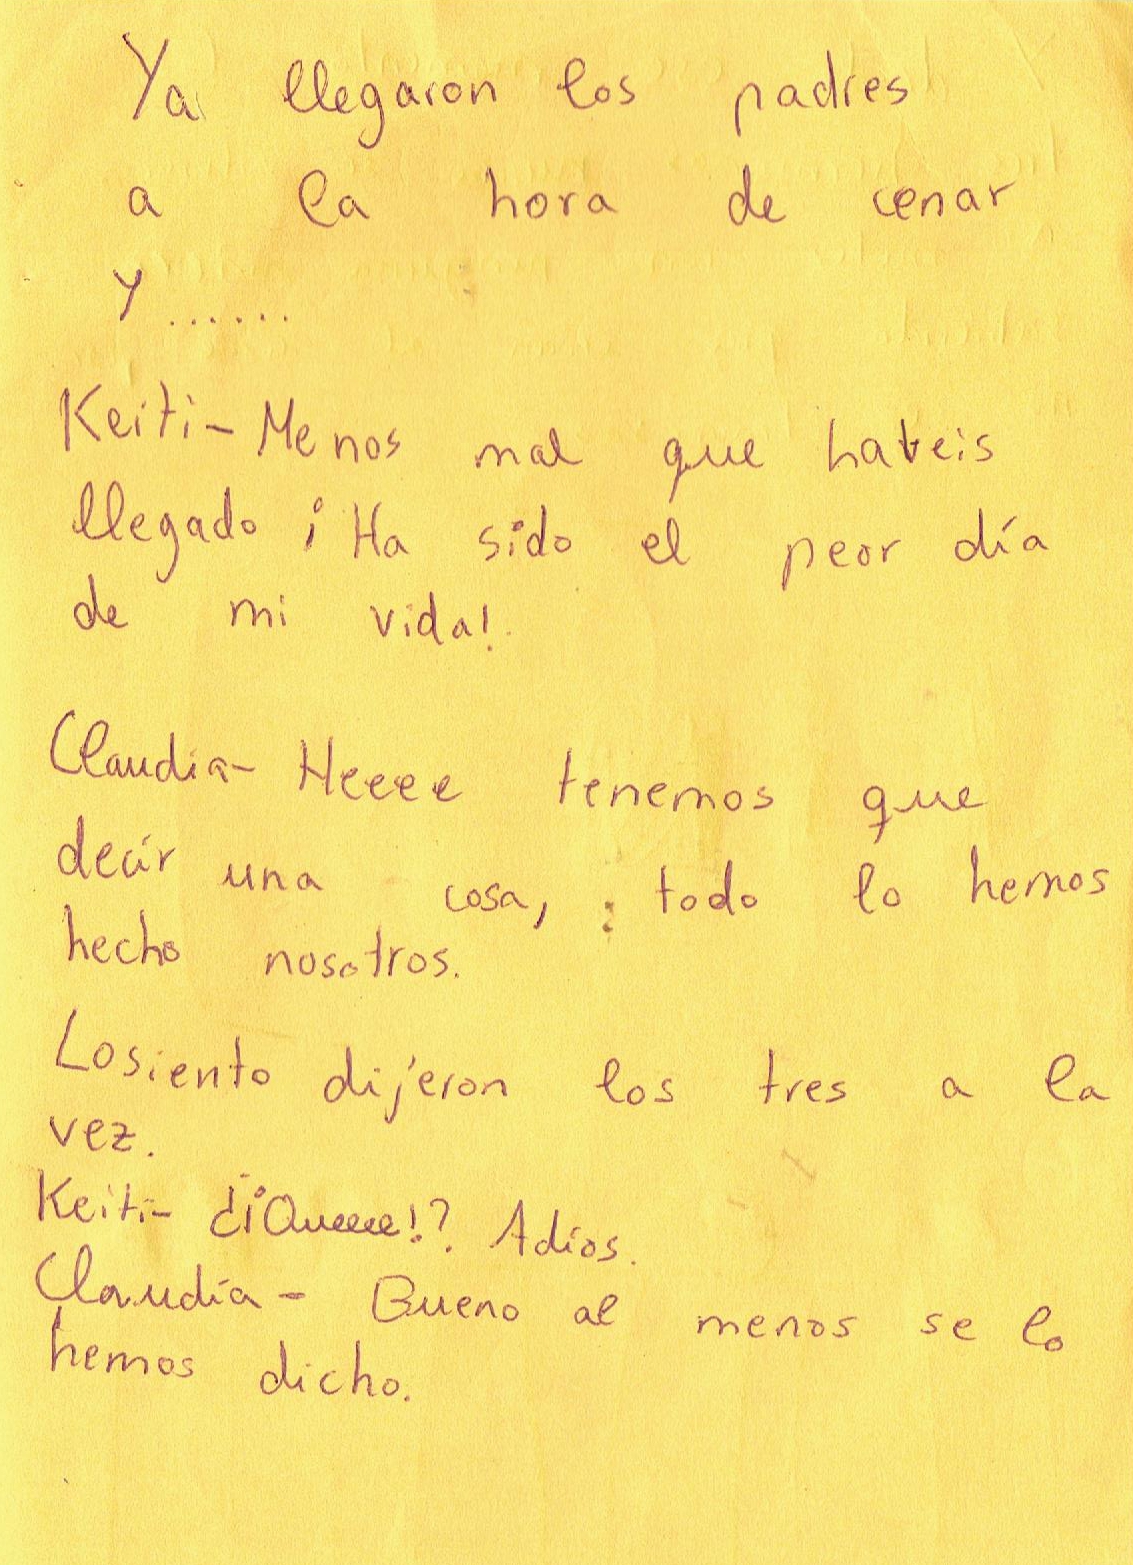 Ya llegaron los padres
a la hora de cenar
y ......
Keiti- Menos mal que habeis
llegado ¡Ha sido el peor día
de mi vida!.
Claudia- Heeee tenemos que
decir una cosa, todo lo hemos
hecho nosotros.
Losiento dijeron los tres a la
vez.
Keiti- ¿¡Queeee!?. Adíos.
Claudía- Bueno al menos se lo
hemos dicho.